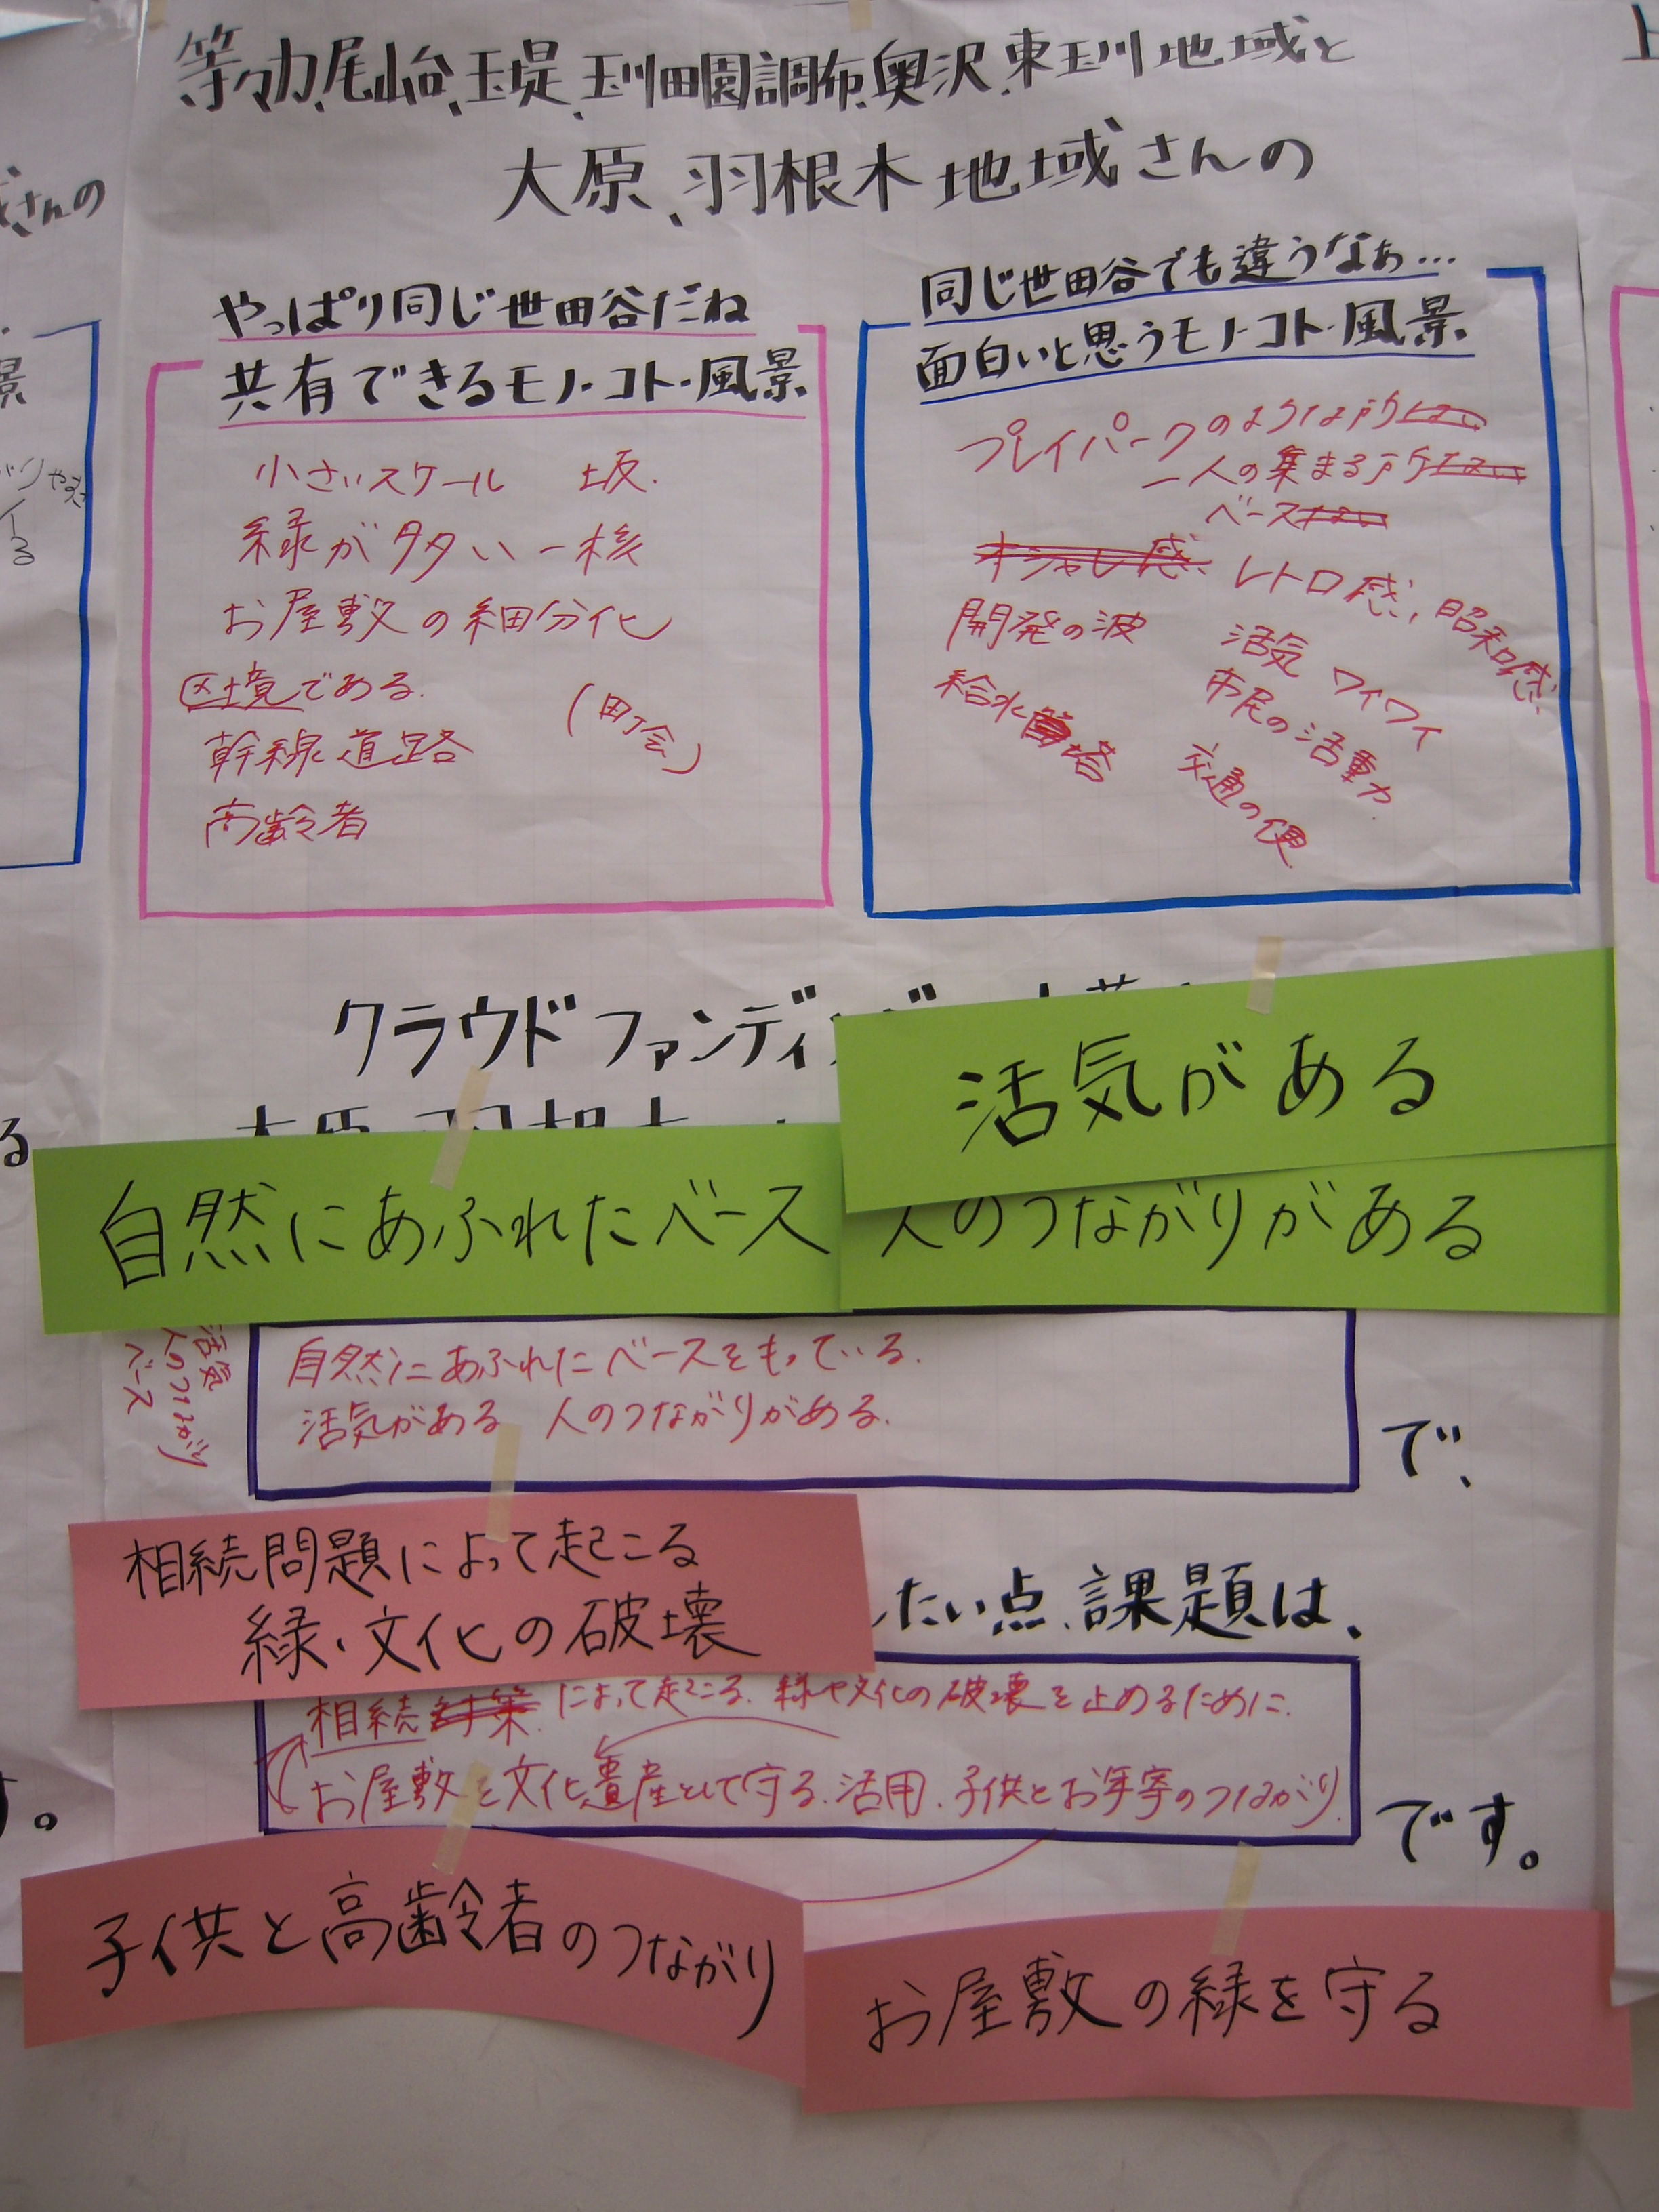 等々力、尾山台、玉堤、玉川田園調布、奥沢、東玉川地域と
大原、羽根木地域さんの
やっぱり同じ世田谷だね
共有できるモノ・コト・風景
小さいスケール 坂.
緑が多い
お屋敷の細分化
区境である.
(町会)
幹線道路
高齢者
同じ世田谷でも違うなぁ…
面白いと思うモノ・コト・風景
プレイパークのような所
人の集まる所
ベース
オシャレ感
レトロ感、昭和感.
開発の波
活気 ワイワイ
給水塔
市民の活動力
交通の便
クラウドファンディング
大原、羽根木
活気がある
自然にあふれたベース
人のつながりがある
活気
人のつながり
ベース
自然にあふれたベースをもっている.
活気がある 人のつながりがある.
で、
相続問題によって起こる
緑・文化の破壊
したい点、課題は、
相続対策.によって起こる.緑や文化の破壊を止めるために.
お屋敷を文化遺産として守る.活用.子供とお年寄のつながり.
です。
子供と高齢者のつながり
お屋敷の緑を守る
さんの
景
る
す。